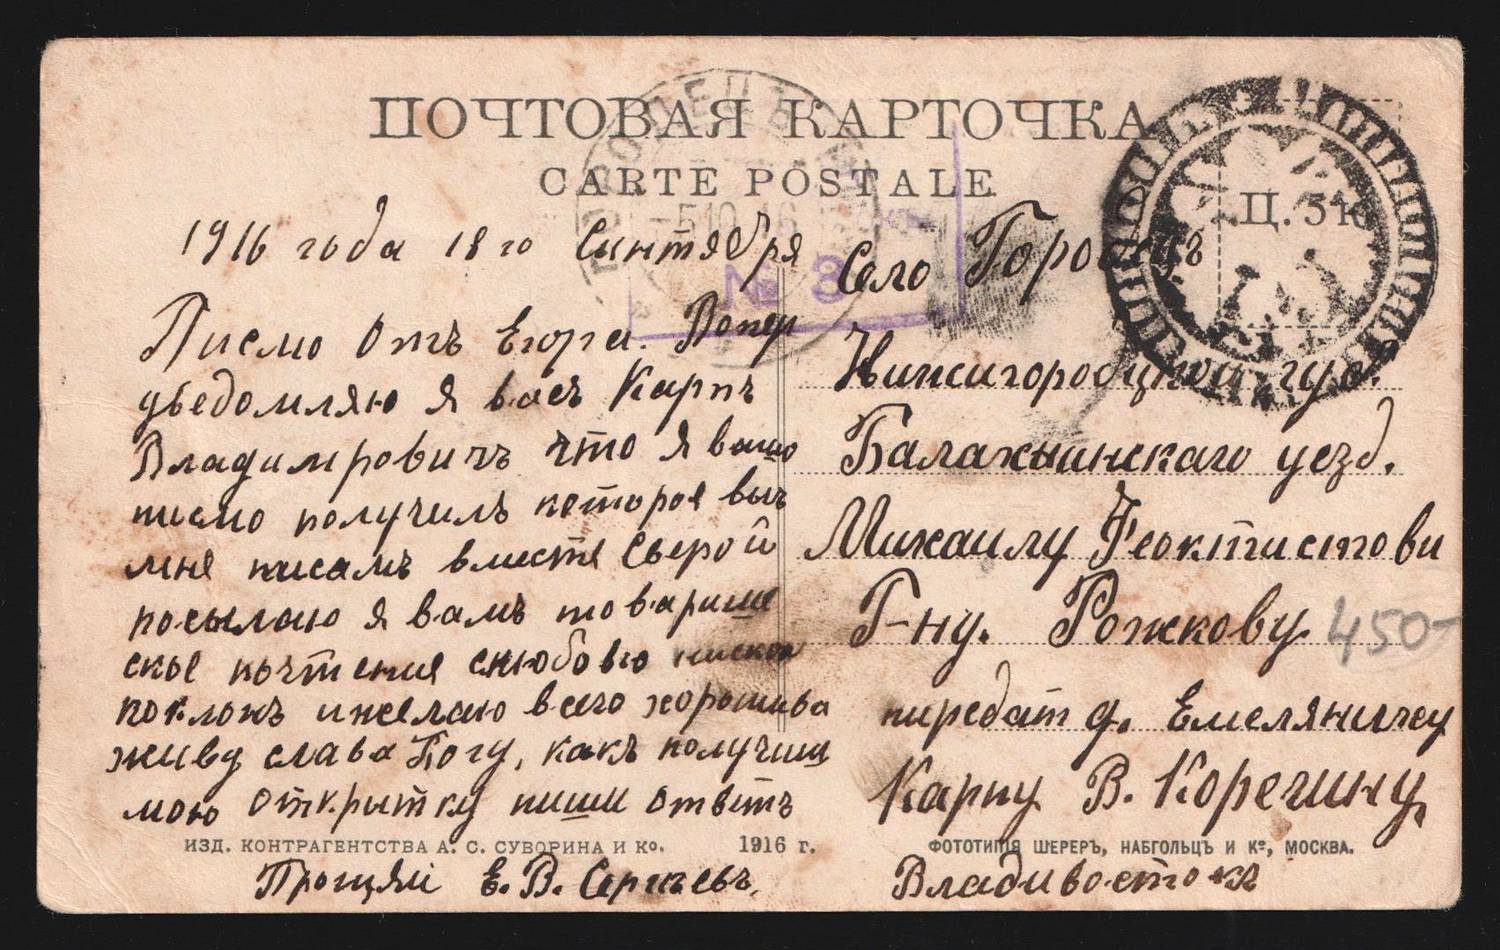 ПОЧТОВАЯ КАРТОЧКА
CARTE POSTALE
Ц. 5 к.
-5 10 16
№ 3
1916 года 18 го Синтября
Писмо Отъ Егора. Вопер
уведомляю я васъ Карпъ
Владимровичъ что я вашо
писмо получилъ которое выъ
мне писамъ вместе Сверой
посылаю я вамъ товарище
ское почтение слюбовю ниской
поклонъ ижелаю всего хорошива
живу слава Богу, какъ получиш
мою открытку пиши ответъ
Прощяй Е. В. Сергеевъ.
Село Городецъ
Нижигородцкой губ.
Балахнинскаго уезд.
Михаилу Феоктистови
Г-ну. Рожкову.
передат д. Емеляничеу
Карпу В. Корегину,
Владивостокъ
450-
ИЗД. КОНТРАГЕНТСТВА А. С. СУВОРИНА И Ко. 1916 г.
ФОТОТИПІЯ ШЕРЕРЪ, НАБГОЛЬЦЪ И Кº, МОСКВА.